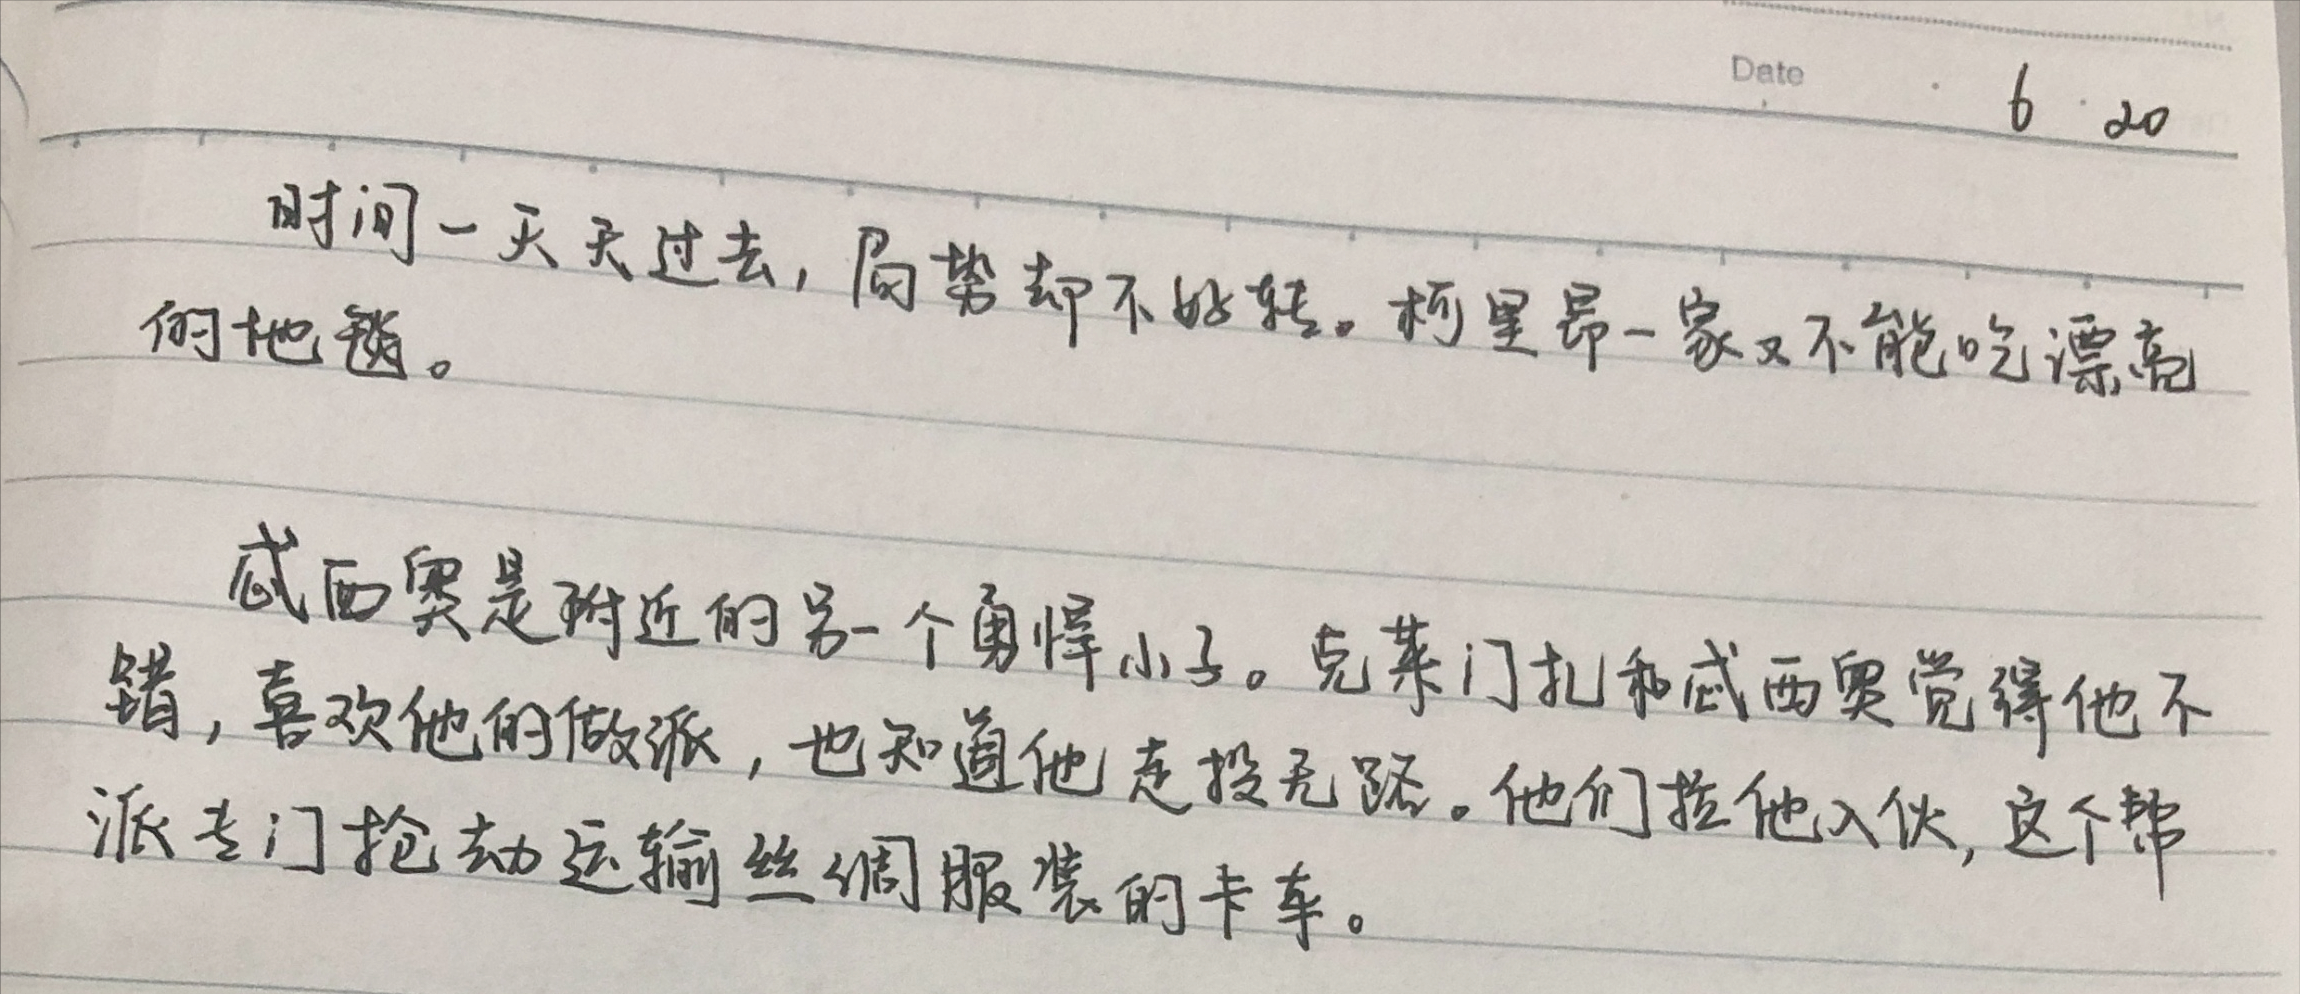 Date 6 20
时间一天天过去，局势却不好转。柯里昂一家又不能吃漂亮
的地毯。
忒西奥是附近的另一个勇悍小子。克莱门扎和忒西奥觉得他不
错，喜欢他的做派，也知道他走投无路。他们拉他入伙，这个帮
派专门抢劫运输丝绸服装的卡车。